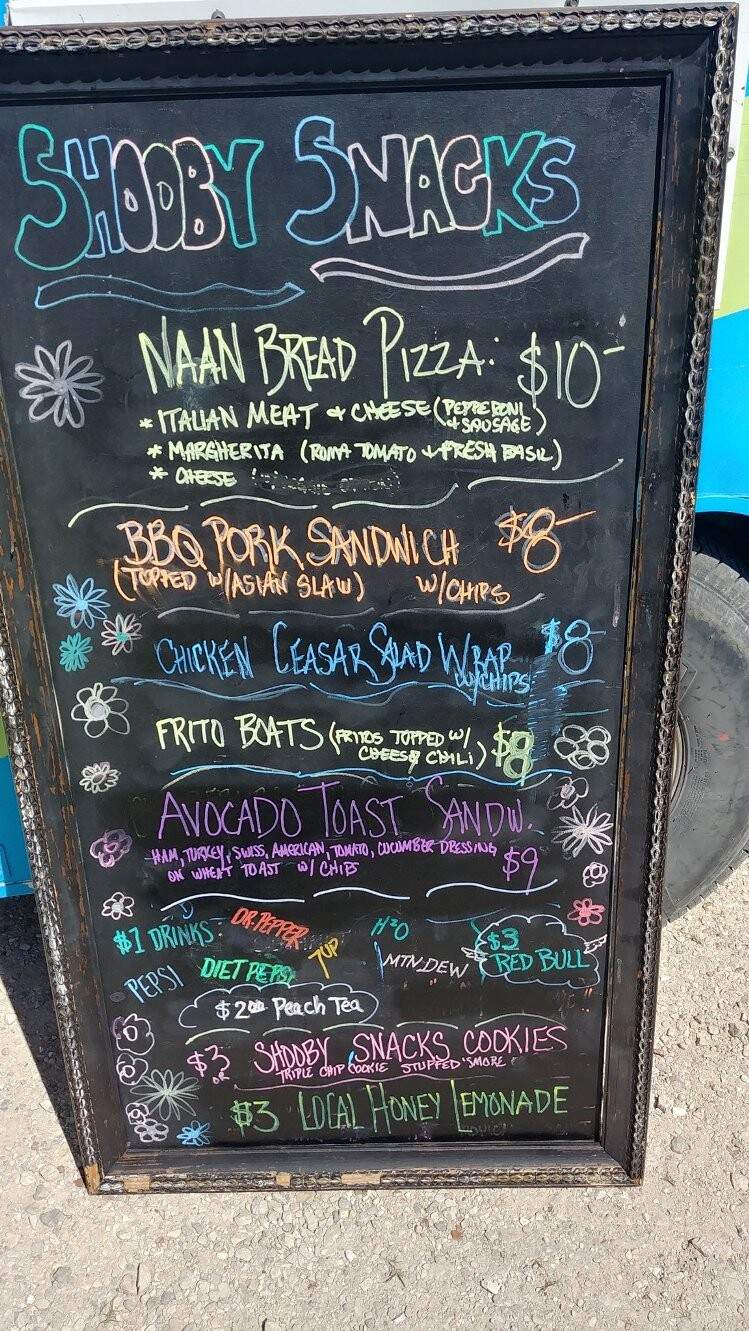 SHOOBY SNACKS
NAAN BREAD PIZZA: $10-
* ITALIAN MEAT & CHEESE (PEPPERONI
& SAUSAGE)
* MARGHERITA (ROMA TOMATO & FRESH BASIL)
* CHEESE
BBQ PORK SANDWICH $8-
(TOPPED W/ASIAN SLAW) W/CHIPS
CHICKEN CEASAR SALAD WRAP $8-
W/CHIPS
FRITO BOATS (FRITOS TOPPED W/ $8
CHEESE CHILI)
AVOCADO TOAST SANDW.
HAM, TURKEY, SWISS, AMERICAN, TOMATO, CUCUMBER DRESSING
ON WHEAT TOAST W/ CHIPS $9
$1 DRINKS DR. PEPPER H²O $3
PEPSI DIET PEPSI 7UP MTN DEW RED BULL
$2.00 Peach Tea
$3 SHOOBY SNACKS COOKIES
TRIPLE CHIP COOKIE STUFFED S'MORE
$3 LOCAL HONEY LEMONADE